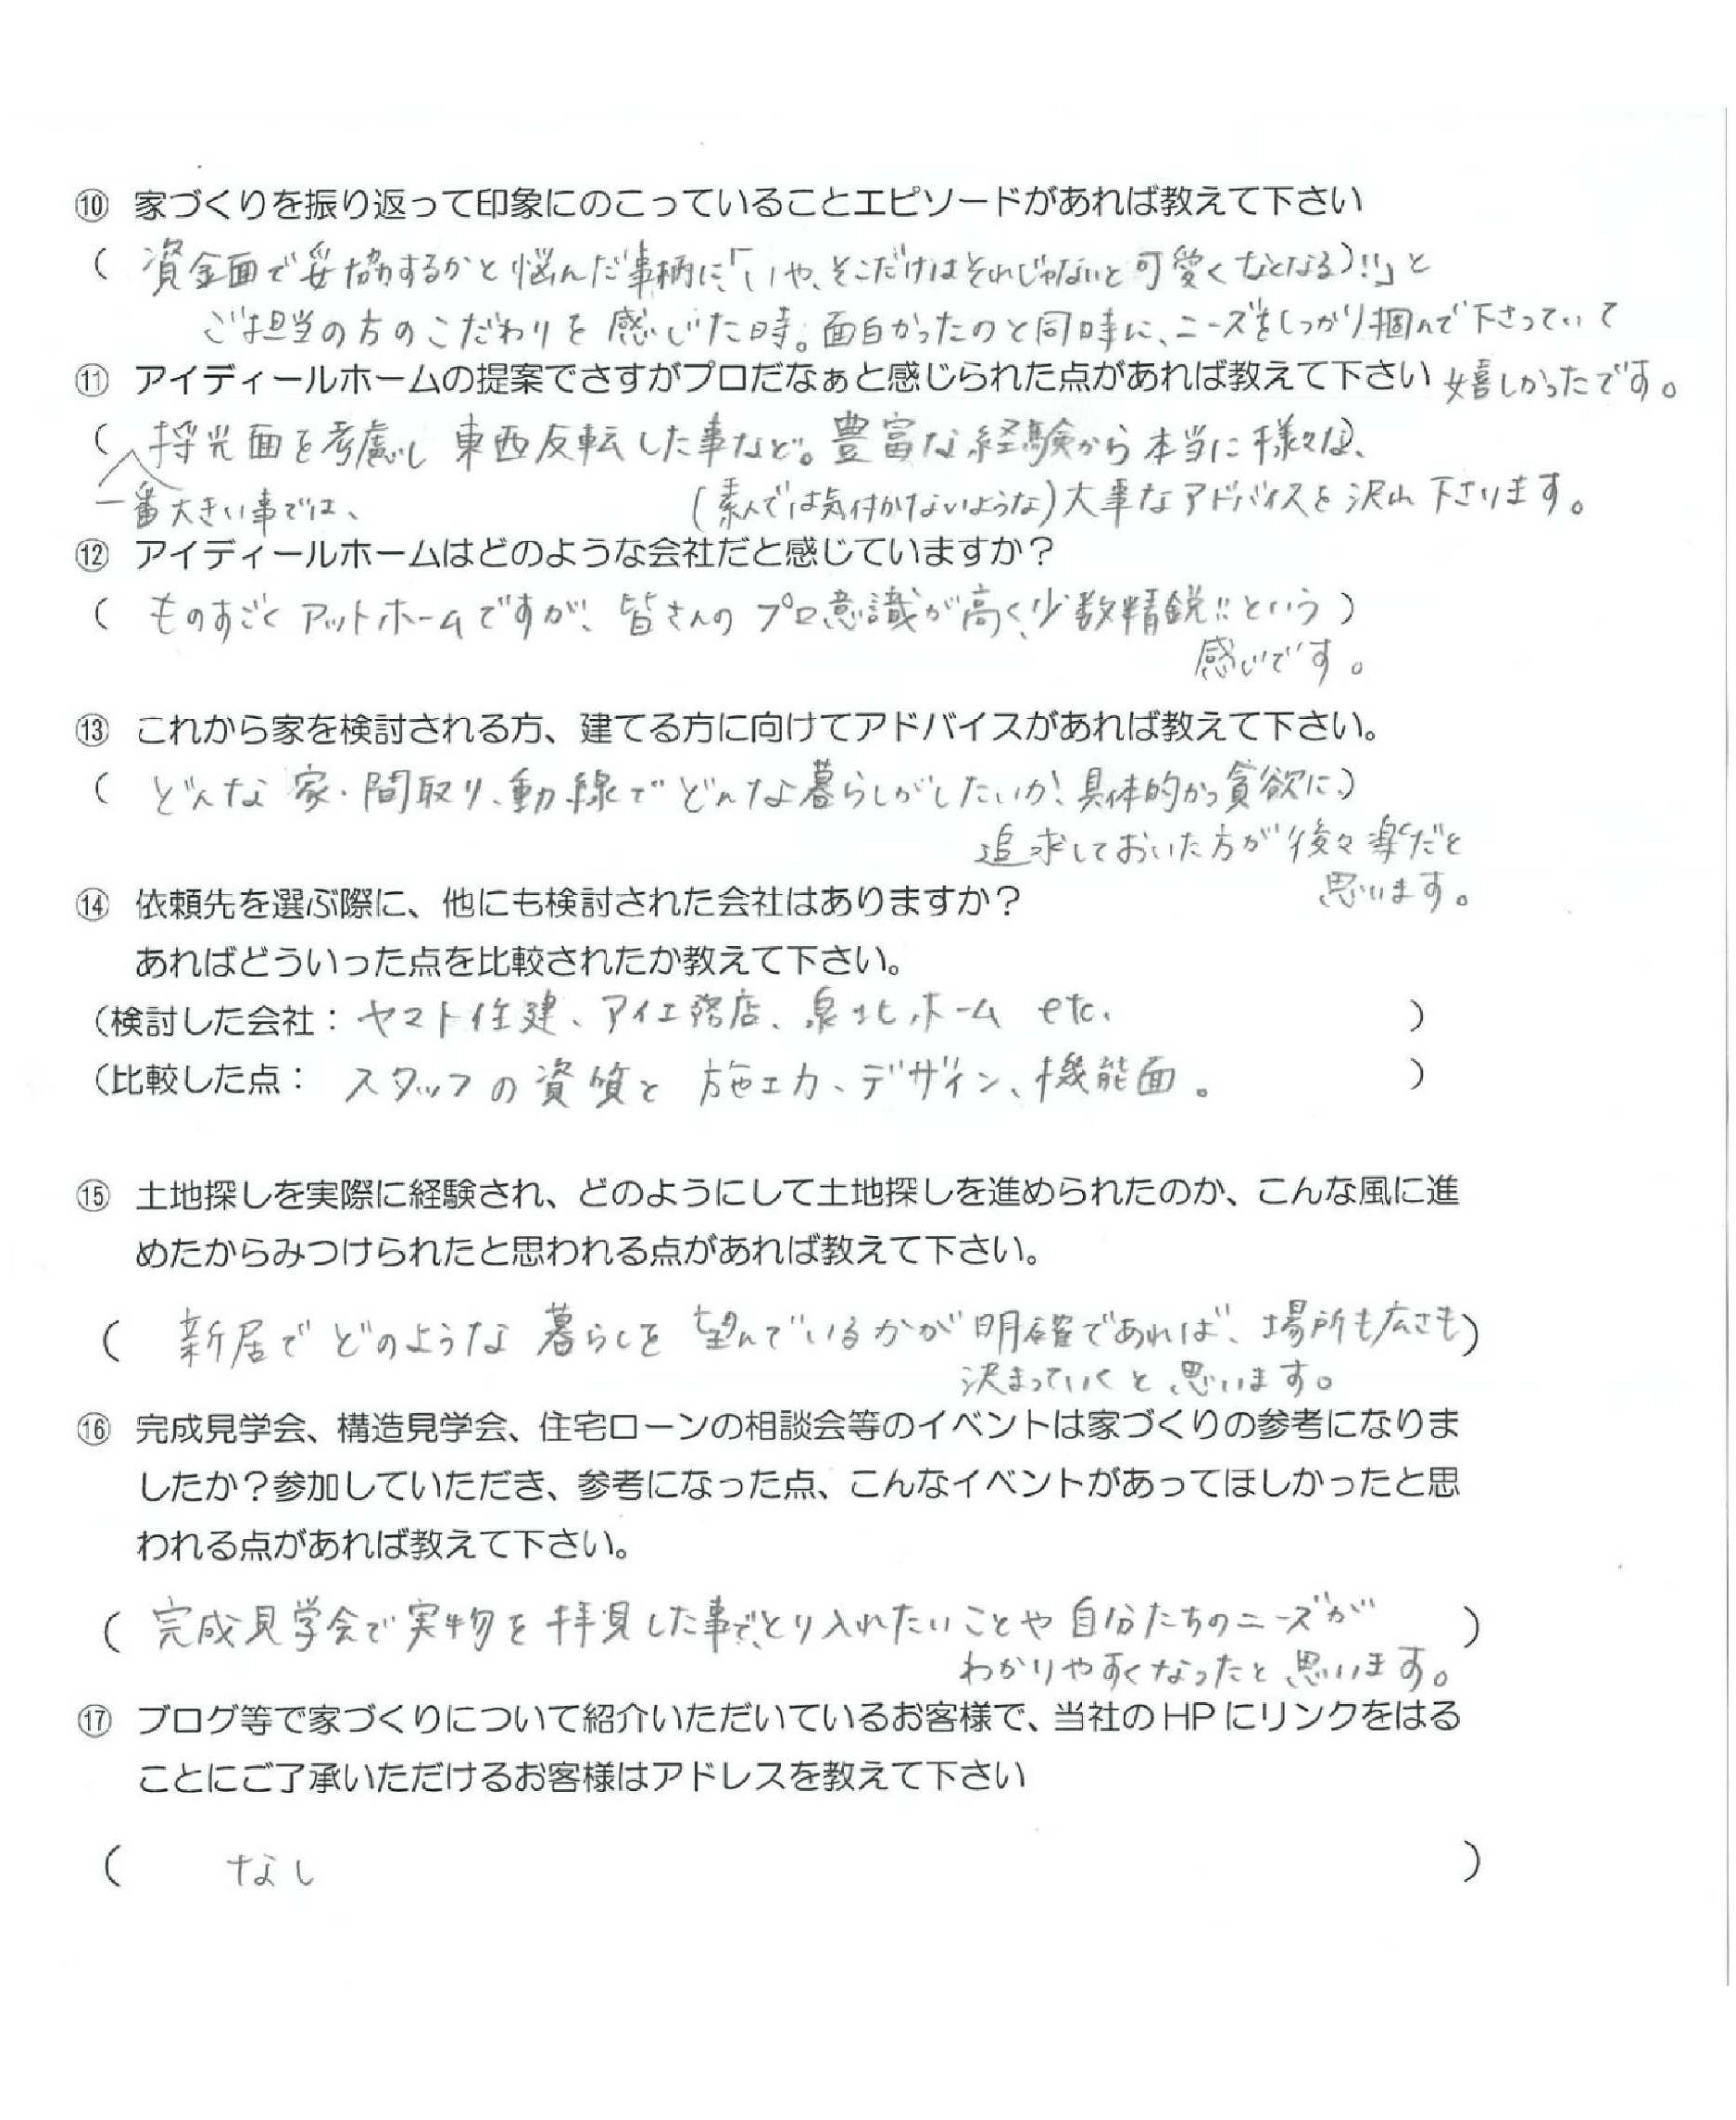 ⑩ 家づくりを振り返って印象にのこっていることエピソードがあれば教えて下さい
( 資金面で妥協するかと悩んだ事柄に、「いや、そこだけはそれじゃないと可愛くなくなる)!!」と
ご担当の方のこだわりを感じた時。面白かったのと同時に、ニーズをしっかり掴んで下さっていて
嬉しかったです。
⑪ アイディールホームの提案でさすがプロだなぁと感じられた点があれば教えて下さい
( 採光面を考慮し東西反転した事など。豊富な経験から本当に様々な、
一番大きい事では、
(素人では気付かないような)大事なアドバイスを沢山下さります。
⑫ アイディールホームはどのような会社だと感じていますか?
( ものすごくアットホームですが、皆さんのプロ意識が高く、少数精鋭!!という )
感じです。
⑬ これから家を検討される方、建てる方に向けてアドバイスがあれば教えて下さい。
( どんな家・間取り、動線でどんな暮らしがしたいか、具体的かつ貪欲に、)
追求しておいた方が後々楽だと
思います。
⑭ 依頼先を選ぶ際に、他にも検討された会社はありますか?
あればどういった点を比較されたか教えて下さい。
(検討した会社: ヤマト住建、アイ工務店、泉北ホーム etc. )
(比較した点: スタッフの資質と施工力、デザイン、機能面。 )
⑮ 土地探しを実際に経験され、どのようにして土地探しを進められたのか、こんな風に進
めたからみつけられたと思われる点があれば教えて下さい。
( 新居でどのような暮らしを望んでいるかが明確であれば、場所も広さも )
決まっていくと思います。
⑯ 完成見学会、構造見学会、住宅ローンの相談会等のイベントは家づくりの参考になりま
したか?参加していただき、参考になった点、こんなイベントがあってほしかったと思
われる点があれば教えて下さい。
( 完成見学会で実物を拝見した事で、とり入れたいことや自分たちのニーズが )
わかりやすくなったと思います。
⑰ ブログ等で家づくりについて紹介いただいているお客様で、当社のHPにリンクをはる
ことにご了承いただけるお客様はアドレスを教えて下さい
( なし )